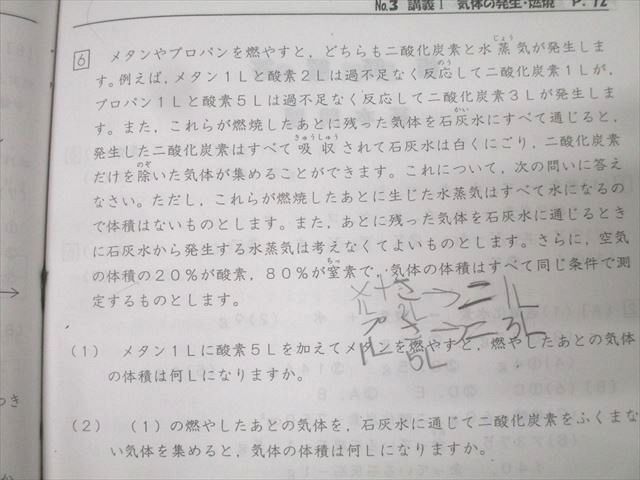 No.3 講義1 気体の発生・燃焼 P.12
6 メタンやプロパンを燃やすと，どちらも二酸化炭素と水蒸気が発生しま
す。例えば，メタン1Lと酸素2Lは過不足なく反応して二酸化炭素1Lが，
プロパン1Lと酸素5Lは過不足なく反応して二酸化炭素3Lが発生しま
す。また，これらが燃焼したあとに残った気体を石灰水にすべて通じると，
発生した二酸化炭素はすべて吸収されて石灰水は白くにごり，二酸化炭素
だけを除いた気体が集めることができます。これについて，次の問いに答え
なさい。ただし，これらが燃焼したあとに生じた水蒸気はすべて水になるの
で体積はないものとします。また，あとに残った気体を石灰水に通じるとき
に石灰水から発生する水蒸気は考えなくてよいものとします。さらに，空気
の体積の20％が酸素，80％が窒素で，気体の体積はすべて同じ条件で測
定するものとします。
メ+さ→二 1L
1L 2L
プ さ→二 3L
1L 5L
(1) メタン1Lに酸素5Lを加えてメタンを燃やすと，燃やしたあとの気体
の体積は何Lになりますか。
(2) (1)の燃やしたあとの気体を，石灰水に通じて二酸化炭素をふくまな
い気体を集めると，気体の体積は何Lになりますか。